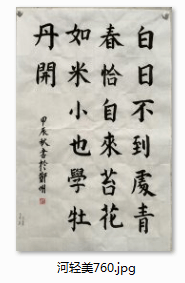 白日不到處青
春恰自來苔花
如米小也學牡
丹開
甲辰秋書於鄭州
河轻美760.jpg